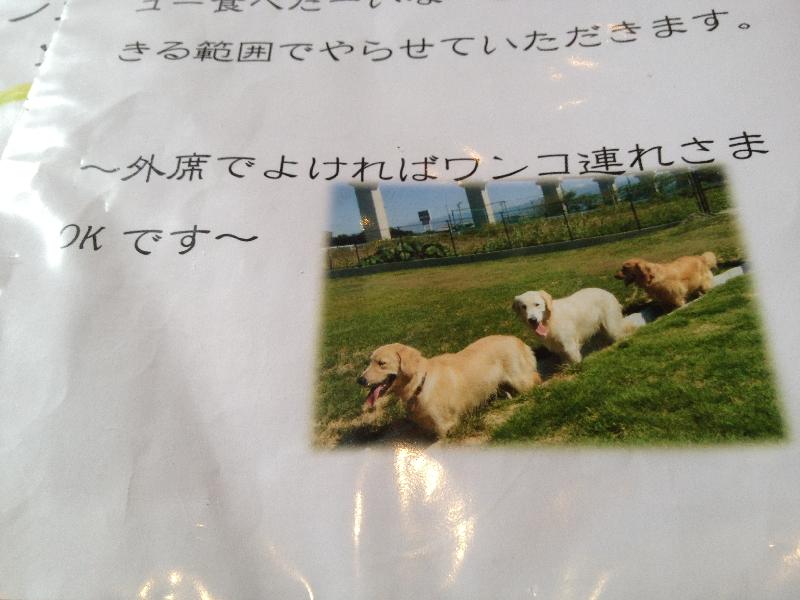 ュー食べたーいな
きる範囲でやらせていただきます。
～外席でよければワンコ連れさま
OK です～